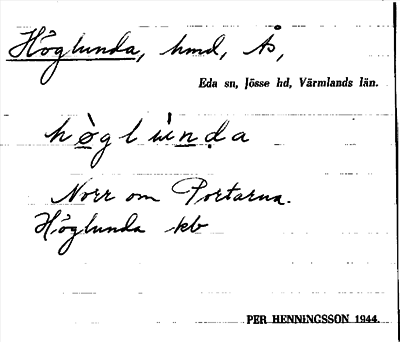 Höglunda, hmd, Ås,
Eda sn, Jösse hd, Värmlands län.
hö̀glùnda
Norr om Portarna.
Höglunda kb
PER HENNINGSSON 1944.